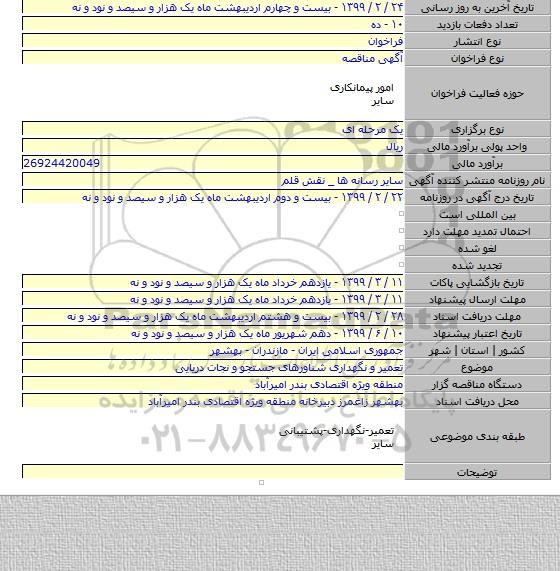 تاریخ آخرین به روز رسانی ۲۴ / ۲ / ۱۳۹۹ - بیست و چهارم اردیبهشت ماه یک هزار و سیصد و نود و نه
تعداد دفعات بازدید ۱۰ - ده
نوع انتشار فراخوان
نوع فراخوان آگهی مناقصه
حوزه فعالیت فراخوان امور پیمانکاری
سایر
نوع برگزاری یک مرحله ای
واحد پولی برآورد مالی ریال
برآورد مالی 26924420049
نام روزنامه منتشر کننده آگهی سایر رسانه ها _ نقش قلم
تاریخ درج آگهی در روزنامه ۲۲ / ۲ / ۱۳۹۹ - بیست و دوم اردیبهشت ماه یک هزار و سیصد و نود و نه
بین المللی است
احتمال تمدید مهلت دارد
لغو شده
تجدید شده
تاریخ بازگشایی پاکات ۱۱ / ۳ / ۱۳۹۹ - یازدهم خرداد ماه یک هزار و سیصد و نود و نه
مهلت ارسال پیشنهاد ۱۱ / ۳ / ۱۳۹۹ - یازدهم خرداد ماه یک هزار و سیصد و نود و نه
مهلت دریافت اسناد ۲۸ / ۲ / ۱۳۹۹ - بیست و هشتم اردیبهشت ماه یک هزار و سیصد و نود و نه
تاریخ اعتبار پیشنهاد ۱۰ / ۶ / ۱۳۹۹ - دهم شهریور ماه یک هزار و سیصد و نود و نه
ParsNamadData
کشور | استان | شهر جمهوری اسلامی ایران - مازندران - بهشهر
موضوع تعمیر و نگهداری شناورهای جستجو و نجات دریایی
دستگاه مناقصه گزار منطقه ویژه اقتصادی بندر امیرآباد
محل دریافت اسناد بهشهر زاغمرز دبیرخانه منطقه ویژه اقتصادی بندر امیرآباد
طبقه بندی موضوعی تعمیر-نگهداری-پشتیبانی
سایر
۰۲۱-۸۸۳۴۹۶۷۰-۵
توضیحات